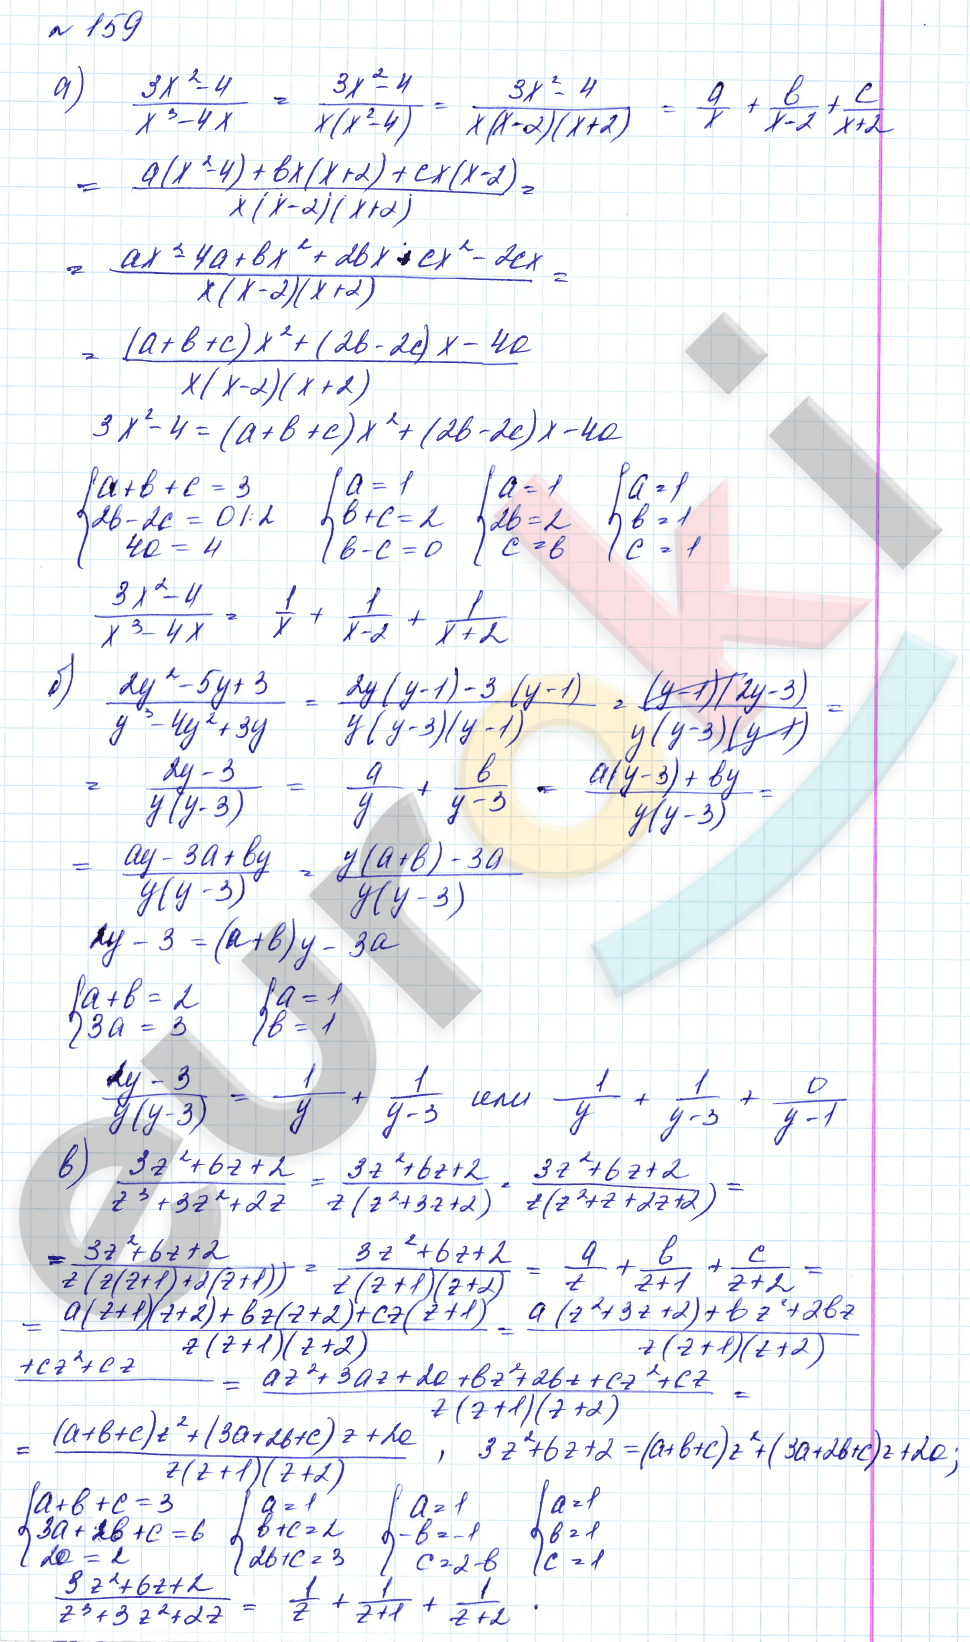 № 159
а) (3x²-4)/(x³-4x) = (3x²-4)/(x(x²-4)) = (3x²-4)/(x(x-2)(x+2)) = a/x + b/(x-2) + c/(x+2)
= (a(x²-4)+bx(x+2)+cx(x-2))/(x(x-2)(x+2)) =
= (ax²-4a+bx²+2bx+cx²-2cx)/(x(x-2)(x+2)) =
= ((a+b+c)x²+(2b-2c)x-4a)/(x(x-2)(x+2))
3x²-4=(a+b+c)x²+(2b-2c)x-4a
{a+b+c=3 {a=1 {a=1 {a=1
2b-2c=0|:2 b+c=2 2b=2 b=1
4a=4 b-c=0 c=b c=1
(3x²-4)/(x³-4x) = 1/x + 1/(x-2) + 1/(x+2)
б) (2y²-5y+3)/(y³-4y²+3y) = (2y(y-1)-3(y-1))/(y(y-3)(y-1)) = ((y-1)(2y-3))/(y(y-3)(y-1)) =
= (2y-3)/(y(y-3)) = a/y + b/(y-3) = (a(y-3)+by)/(y(y-3)) =
= (ay-3a+by)/(y(y-3)) = (y(a+b)-3a)/(y(y-3))
2y-3=(a+b)y-3a
{a+b=2 {a=1
3a=3 b=1
(2y-3)/(y(y-3)) = 1/y + 1/(y-3) или 1/y + 1/(y-3) + 0/(y-1)
в) (3z²+6z+2)/(z³+3z²+2z) = (3z²+6z+2)/(z(z²+3z+2)) = (3z²+6z+2)/(z(z²+z+2z+2)) =
= (3z²+6z+2)/(z(z(z+1)+2(z+1))) = (3z²+6z+2)/(z(z+1)(z+2)) = a/z + b/(z+1) + c/(z+2) =
= (a(z+1)(z+2)+bz(z+2)+cz(z+1))/(z(z+1)(z+2)) = (a(z²+3z+2)+bz²+2bz)/(z(z+1)(z+2))
+cz²+cz = (az²+3az+2a+bz²+2bz+cz²+cz)/(z(z+1)(z+2)) =
= ((a+b+c)z²+(3a+2b+c)z+2a)/(z(z+1)(z+2)), 3z²+6z+2=(a+b+c)z²+(3a+2b+c)z+2a;
{a+b+c=3 {a=1 {a=1 {a=1
3a+2b+c=6 b+c=2 -b=-1 b=1
2a=2 2b+c=3 c=2-b c=1
(3z²+6z+2)/(z³+3z²+2z) = 1/z + 1/(z+1) + 1/(z+2).
euroki